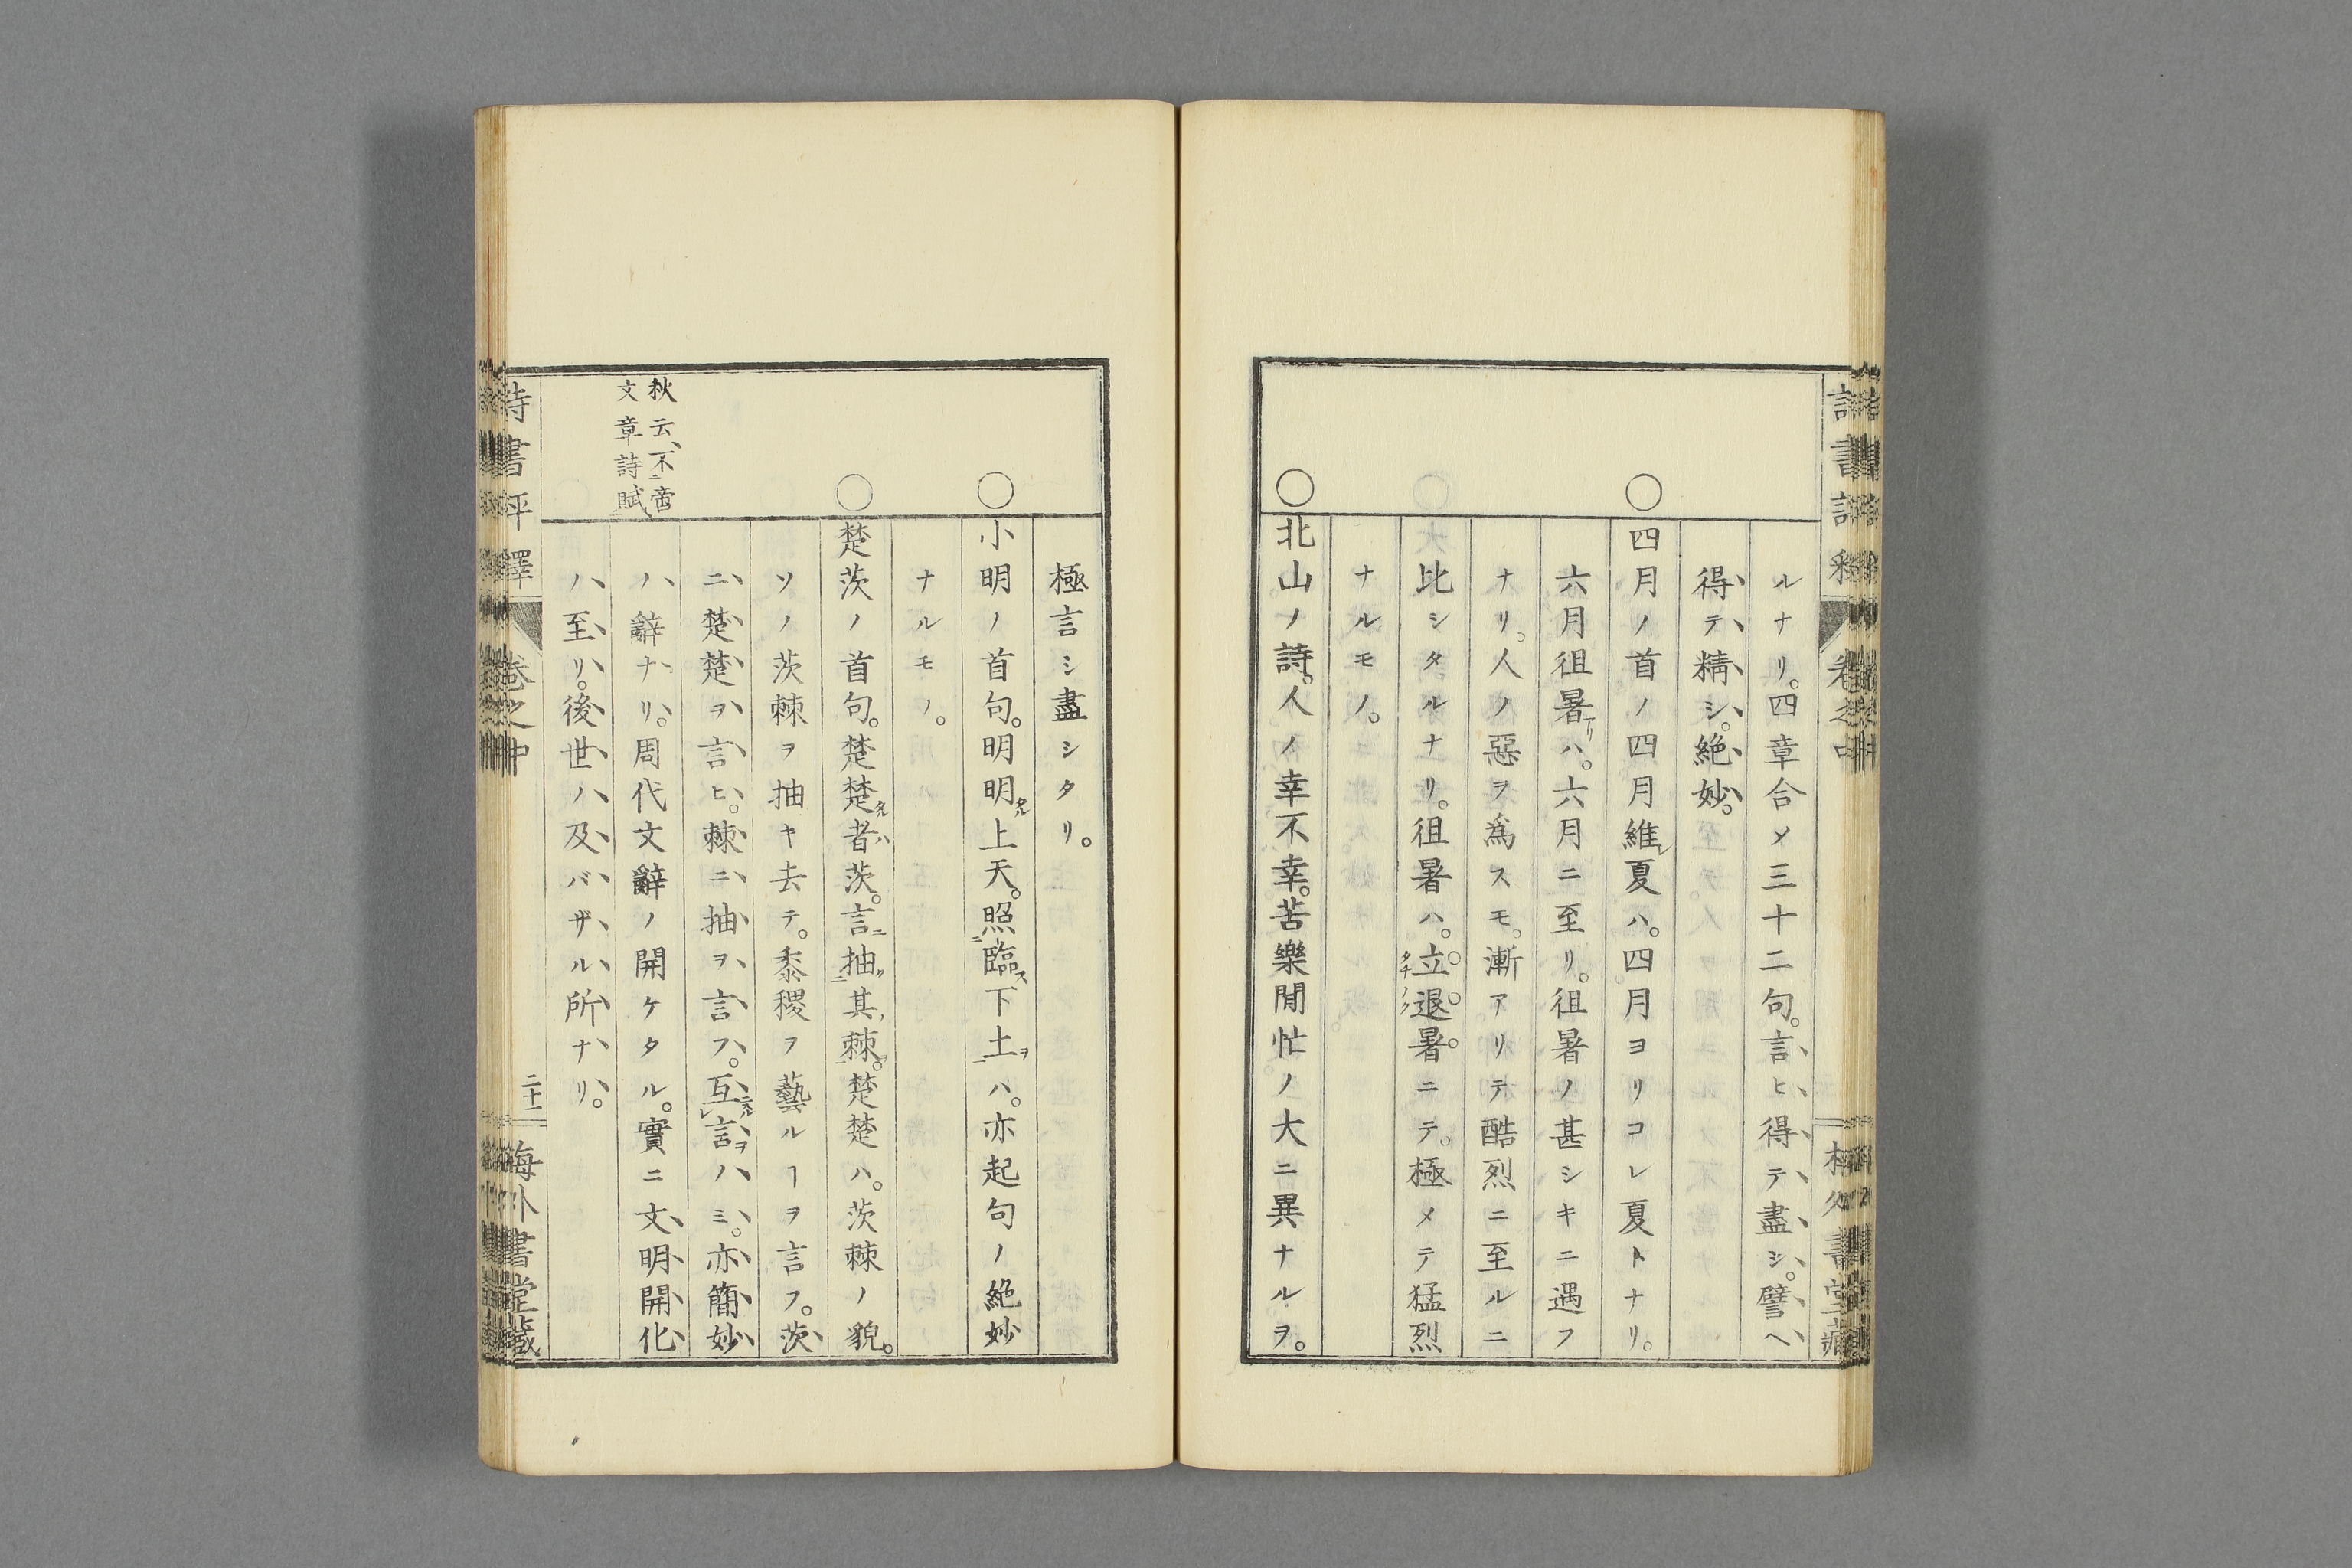 ルナリ。四章合メ三十二句。言ヒ得テ盡シ。譬ヘ
得テ精シ。絶妙。
○四月ノ首ノ四月維レ夏ハ。四月ヨリコレ夏トナリ。
六月徂暑アリハ。六月ニ至リ。徂暑ノ甚シキニ遇フ
ナリ。人ノ惡ヲ爲スモ。漸アリテ酷烈ニ至ルニ
比シタルナリ。徂暑ハ。立退暑ニテ。極メテ猛烈
タチノク
ナルモノ。
○北山ノ詩。人ノ幸不幸。苦樂閒忙ノ大ニ異ナルヲ。
極言シ盡シタリ。
○小明ノ首句。明明タル上天。照二臨ス下土一ヲハ。亦起句ノ絶妙
ナルモノ。
○楚茨ノ首句。楚楚タル者ハ茨。言ニ抽二ク其ノ棘一ヲ。楚楚ハ。茨棘ノ貌。
ソノ茨棘ヲ抽キ去テ。黍稷ヲ藝ルヿヲ言フ。茨
ニ楚楚ヲ言ヒ。棘ニ抽ヲ言フ。互ニスルレ言ヲノミ。亦簡妙
ノ辭ナリ。周代文辭ノ開ケタル。實ニ文明開化
ノ至リ。後世ノ及バザル所ナリ。
秋云、不二啻
文章詩賦
詩書評釋
卷之中
二十一
海外書堂藏